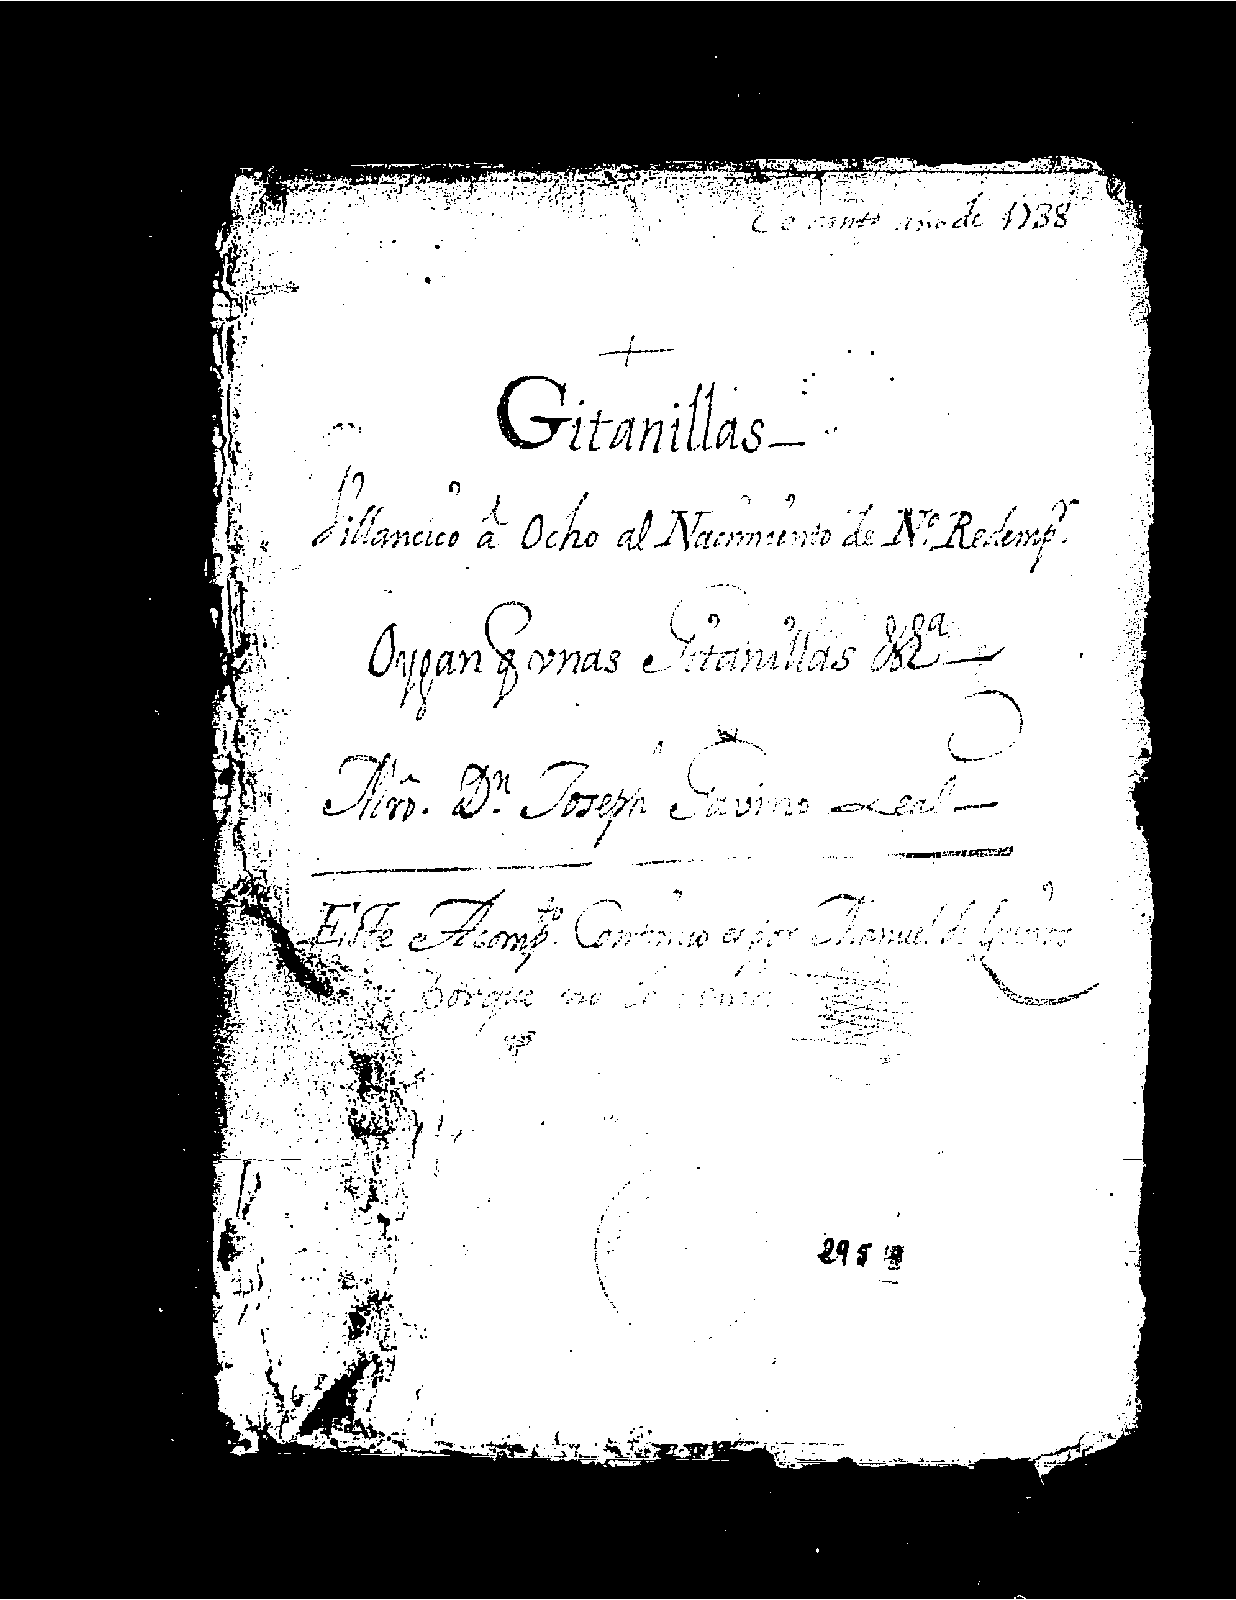 Se canto año de 1738
Gitanillas
Villancico â Ocho al Nacimiento de Nº. Redempr.
Oygan q vnas Gitanillas &ª
Mrõ. Dn. Joseph Gavino Leal
Este Acompto. Continuo es por Manuel de
Porque no lo
295